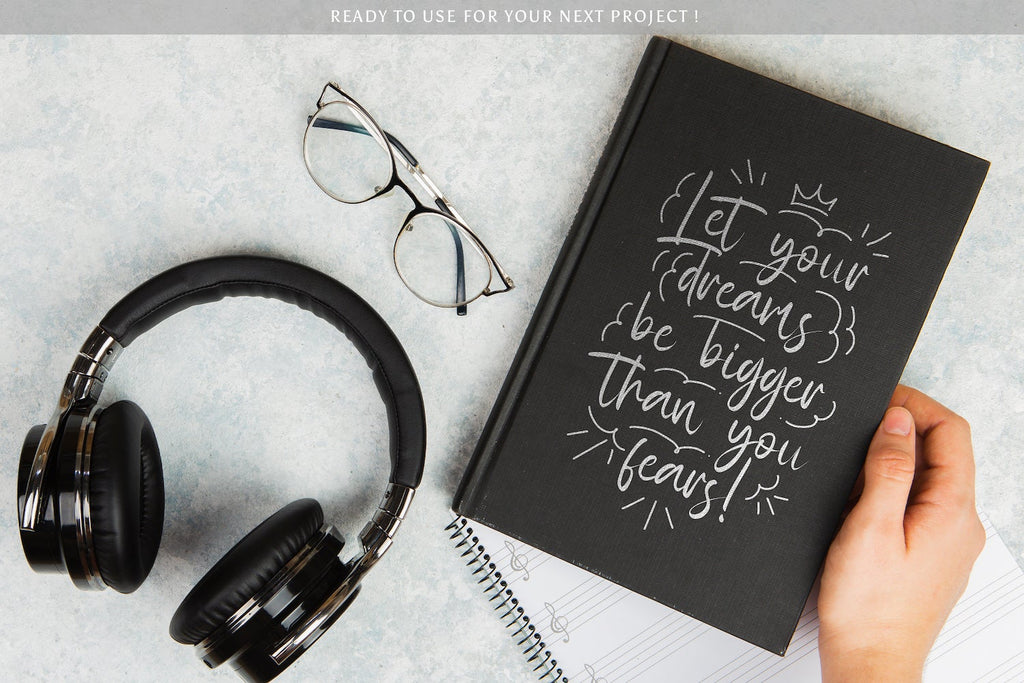 READY TO USE FOR YOUR NEXT PROJECT !
Let your
dreams
be bigger
than you
fears!